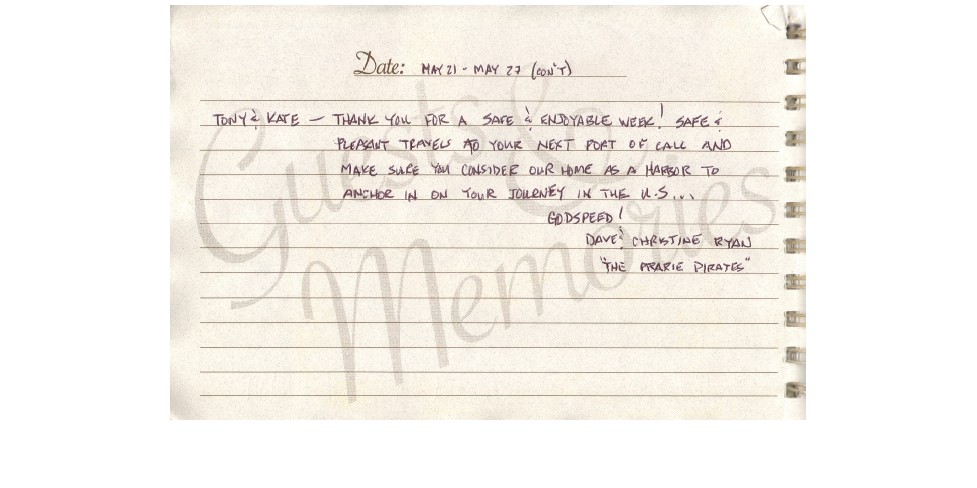 Guests &
Memories
Date: MAY 21 - MAY 27 (CON'T)
TONY & KATE — THANK YOU FOR A SAFE & ENJOYABLE WEEK! SAFE &
PLEASANT TRAVELS TO YOUR NEXT PORT OF CALL AND
MAKE SURE YOU CONSIDER OUR HOME AS A HARBOR TO
ANCHOR IN ON YOUR JOURNEY IN THE U.S...
GODSPEED!
DAVE & CHRISTINE RYAN
"THE PRARIE PIRATES"